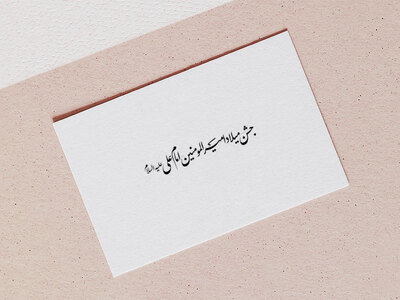 جشن میلاد امیرالمومنین امام علی علیه السلام